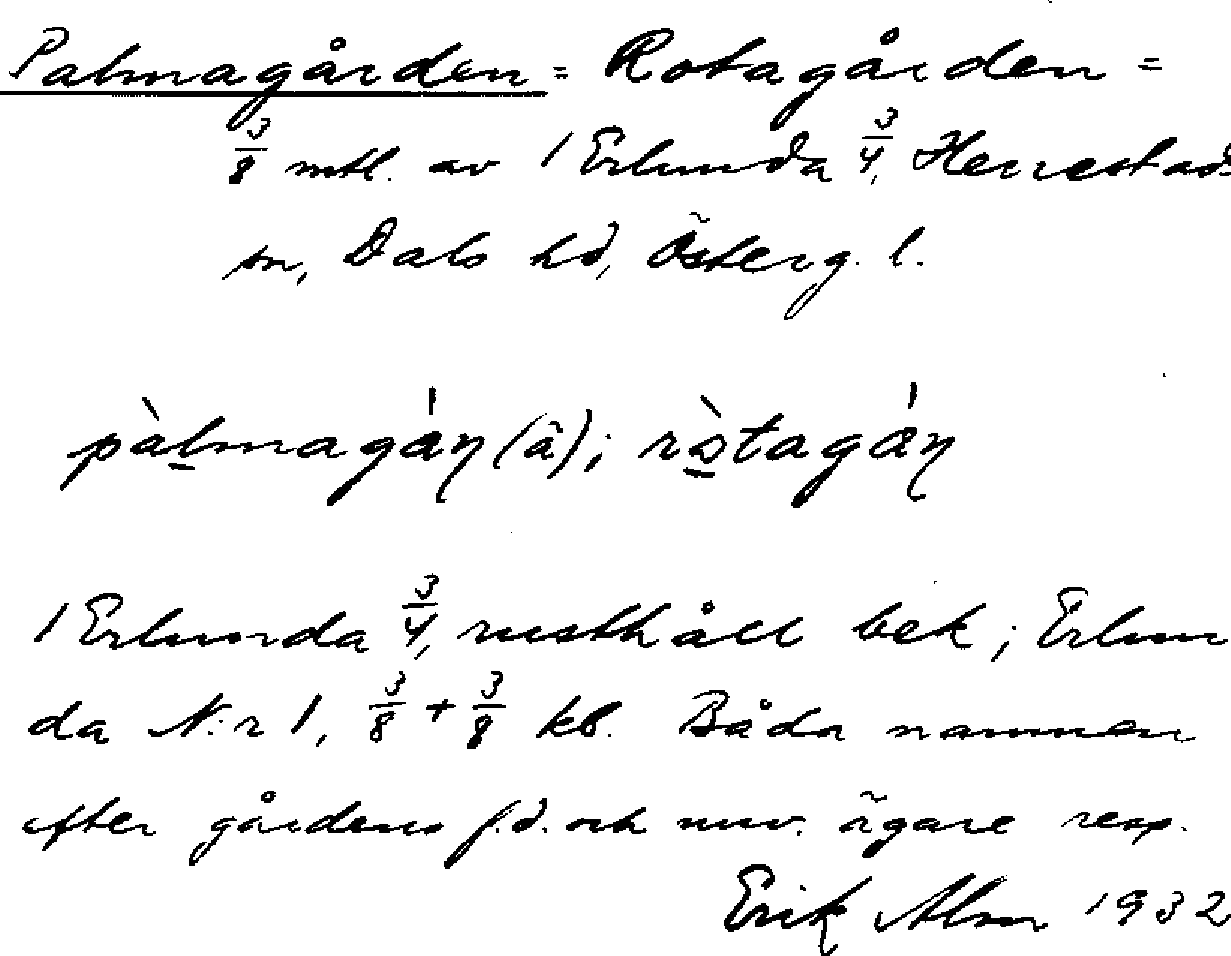 Palmagården = Rotagården =
3/8 mtl. av 1 Erlunda 3/4, Herrestads
sn, Dals hd, Österg. l.
pàlmagáṇ (â); ròtagáṇ
1 Erlunda 3/4, rusthåll bek; Erlun
da N:r 1, 3/8 + 3/8 kb. Båda namnen
efter gårdens f.d. och nuv. ägare resp.
Erik Alm 1932